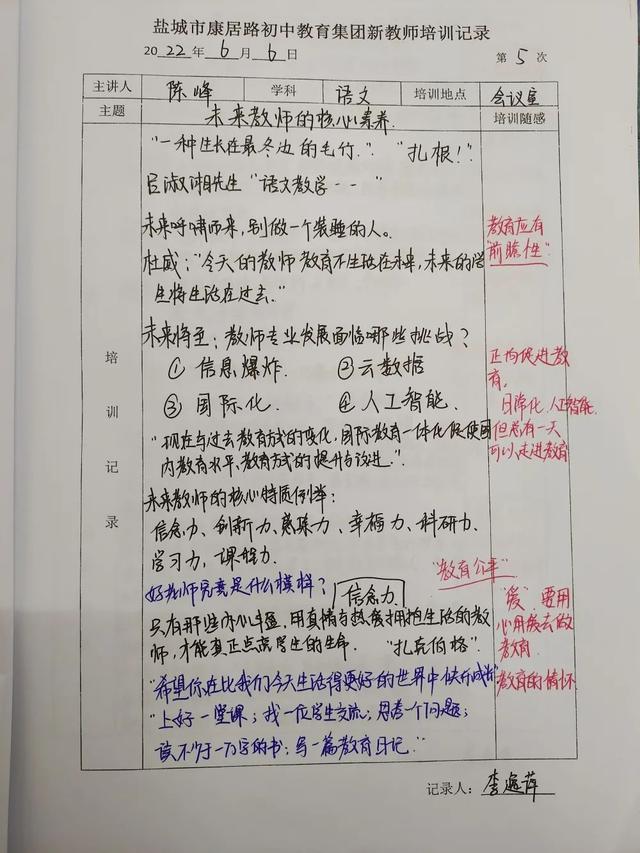 盐城市康居路初中教育集团新教师培训记录
2022年6月6日 第5次
主讲人 陈峰 学科 语文 培训地点 会议室
主题 未来教师的核心素养 培训随感
"一种生长在最冬边的毛竹." "扎根!"
吕淑湘先生"语文教学---"
未来呼啸而来,别做一个装睡的人。
教育应有
"前瞻性"
杜威:"今天的教师教育不生活在未来,未来的学
生将生活在过去."
未来将至:教师专业发展面临哪些挑战?
①信息爆炸. ②云数据
③国际化. ④人工智能.
正均促进教
育,
日常化,人工智能,
但总有一天
可以走进教育
"现在与过去教育方式的变化,国际教育一体化促使国
内教育水平、教育方式的提升与改进."
未来教师的核心特质例举:
信念力、创新力、感染力、幸福力、科研力、
学习力,课程力.
"教育公平"
好教师究竟是什么模样? 信念力
只有那些内心丰盈,用真情与热爱拥抱生活的教
师,才能真正点亮学生的生命. "扎克伯格"
"爱".要用
心用爱去做
教育.
教育的情怀
"希望你在比我们今天生活得更好的世界中快乐成长"
"上好一堂课;找一位学生交流;思考一个问题;
读不少于一万字的书;写一篇教育日记."
培训记录
记录人:李